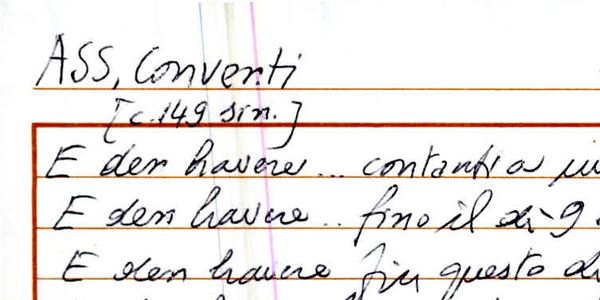 ASS, Conventi
[c. 149 sin.]
E den havere... contanti a
E den havere.. fino il di 9
E den havere fin questo di